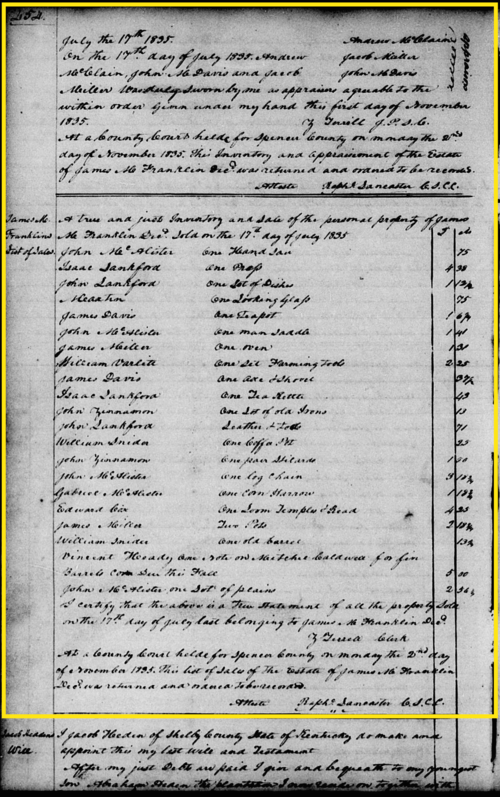 252.
July the 17th 1835. Andrew McClain
On the 17th day of July 1835. Andrew Jacob Miller
McClain, John McDavis and Jacob John McDavis
Miller Was duly Sworn by me as appraisers agreable to the
within order Given under my hand this first day of November
1835. Z Terrill J. P. S. C.
At a County Court helde for Spencer County on monday the 2nd
day of November 1835. This Inventory and appraisement of the Estate
of James M Franklin Decd was returned and ordered to be recorded.
Atteste Raphl Lancaster C.S.C.C.
James M. A true and just Inventory and Sale of the personal property of James
Franklins M. Franklin Decd Sold on the 17th day of July 1835
List of Sales. John McAlister One Hand Saw 75
Isaac Lankford One Press 4 38
John Lankford One Lot of Dishes 1 12½
One Looking Glass 75
James Davis One Teapot 1
John McAlister One man Saddle 1
James Miller One oven 1 31
William One Set Farming Tools 2 25
James Davis One Axe & Shovel 37½
Isaac Lankford One Tea Kettle 43
John Zinnamon One Lot of old Irons 13
John Lankford Leather & Tools 71
William Snider One Coffee Pot 25
John Zinnamon One pair Stilards 1 50
John McAlister One log Chain 3
Gabriel McAlister One Corn Harrow 1
Edward Cox One Loom Temples & Read 4 25
James Miller Two Pots 2
William Snider One old barrel 13½
Vincent Heady One Note on Mitchel Caldwell for five
Barrels Corn Due this Fall 5 00
John McAlister one Lot of plains 2
I certify that the above is a True Statement of all the property Sold
on the 17th day of July last belonging to James M Franklin Decd
Z Terrell Clerk
At a County Court helde for Spencer County on monday the 2nd day
of November 1835. This list of Sales of the Estate of James M. Franklin
Decd was returned and ordered to be recorded.
Atteste Raphl Lancaster C.S.C.C.
Jacob Hedens I Jacob Heden of Shelby County State of Kentucky do make and
Will. appoint this my last Will and Testament
After my just Debts are paid I give and bequeath to my youngest
Son Abraham Heden the plantation I now reside on together with